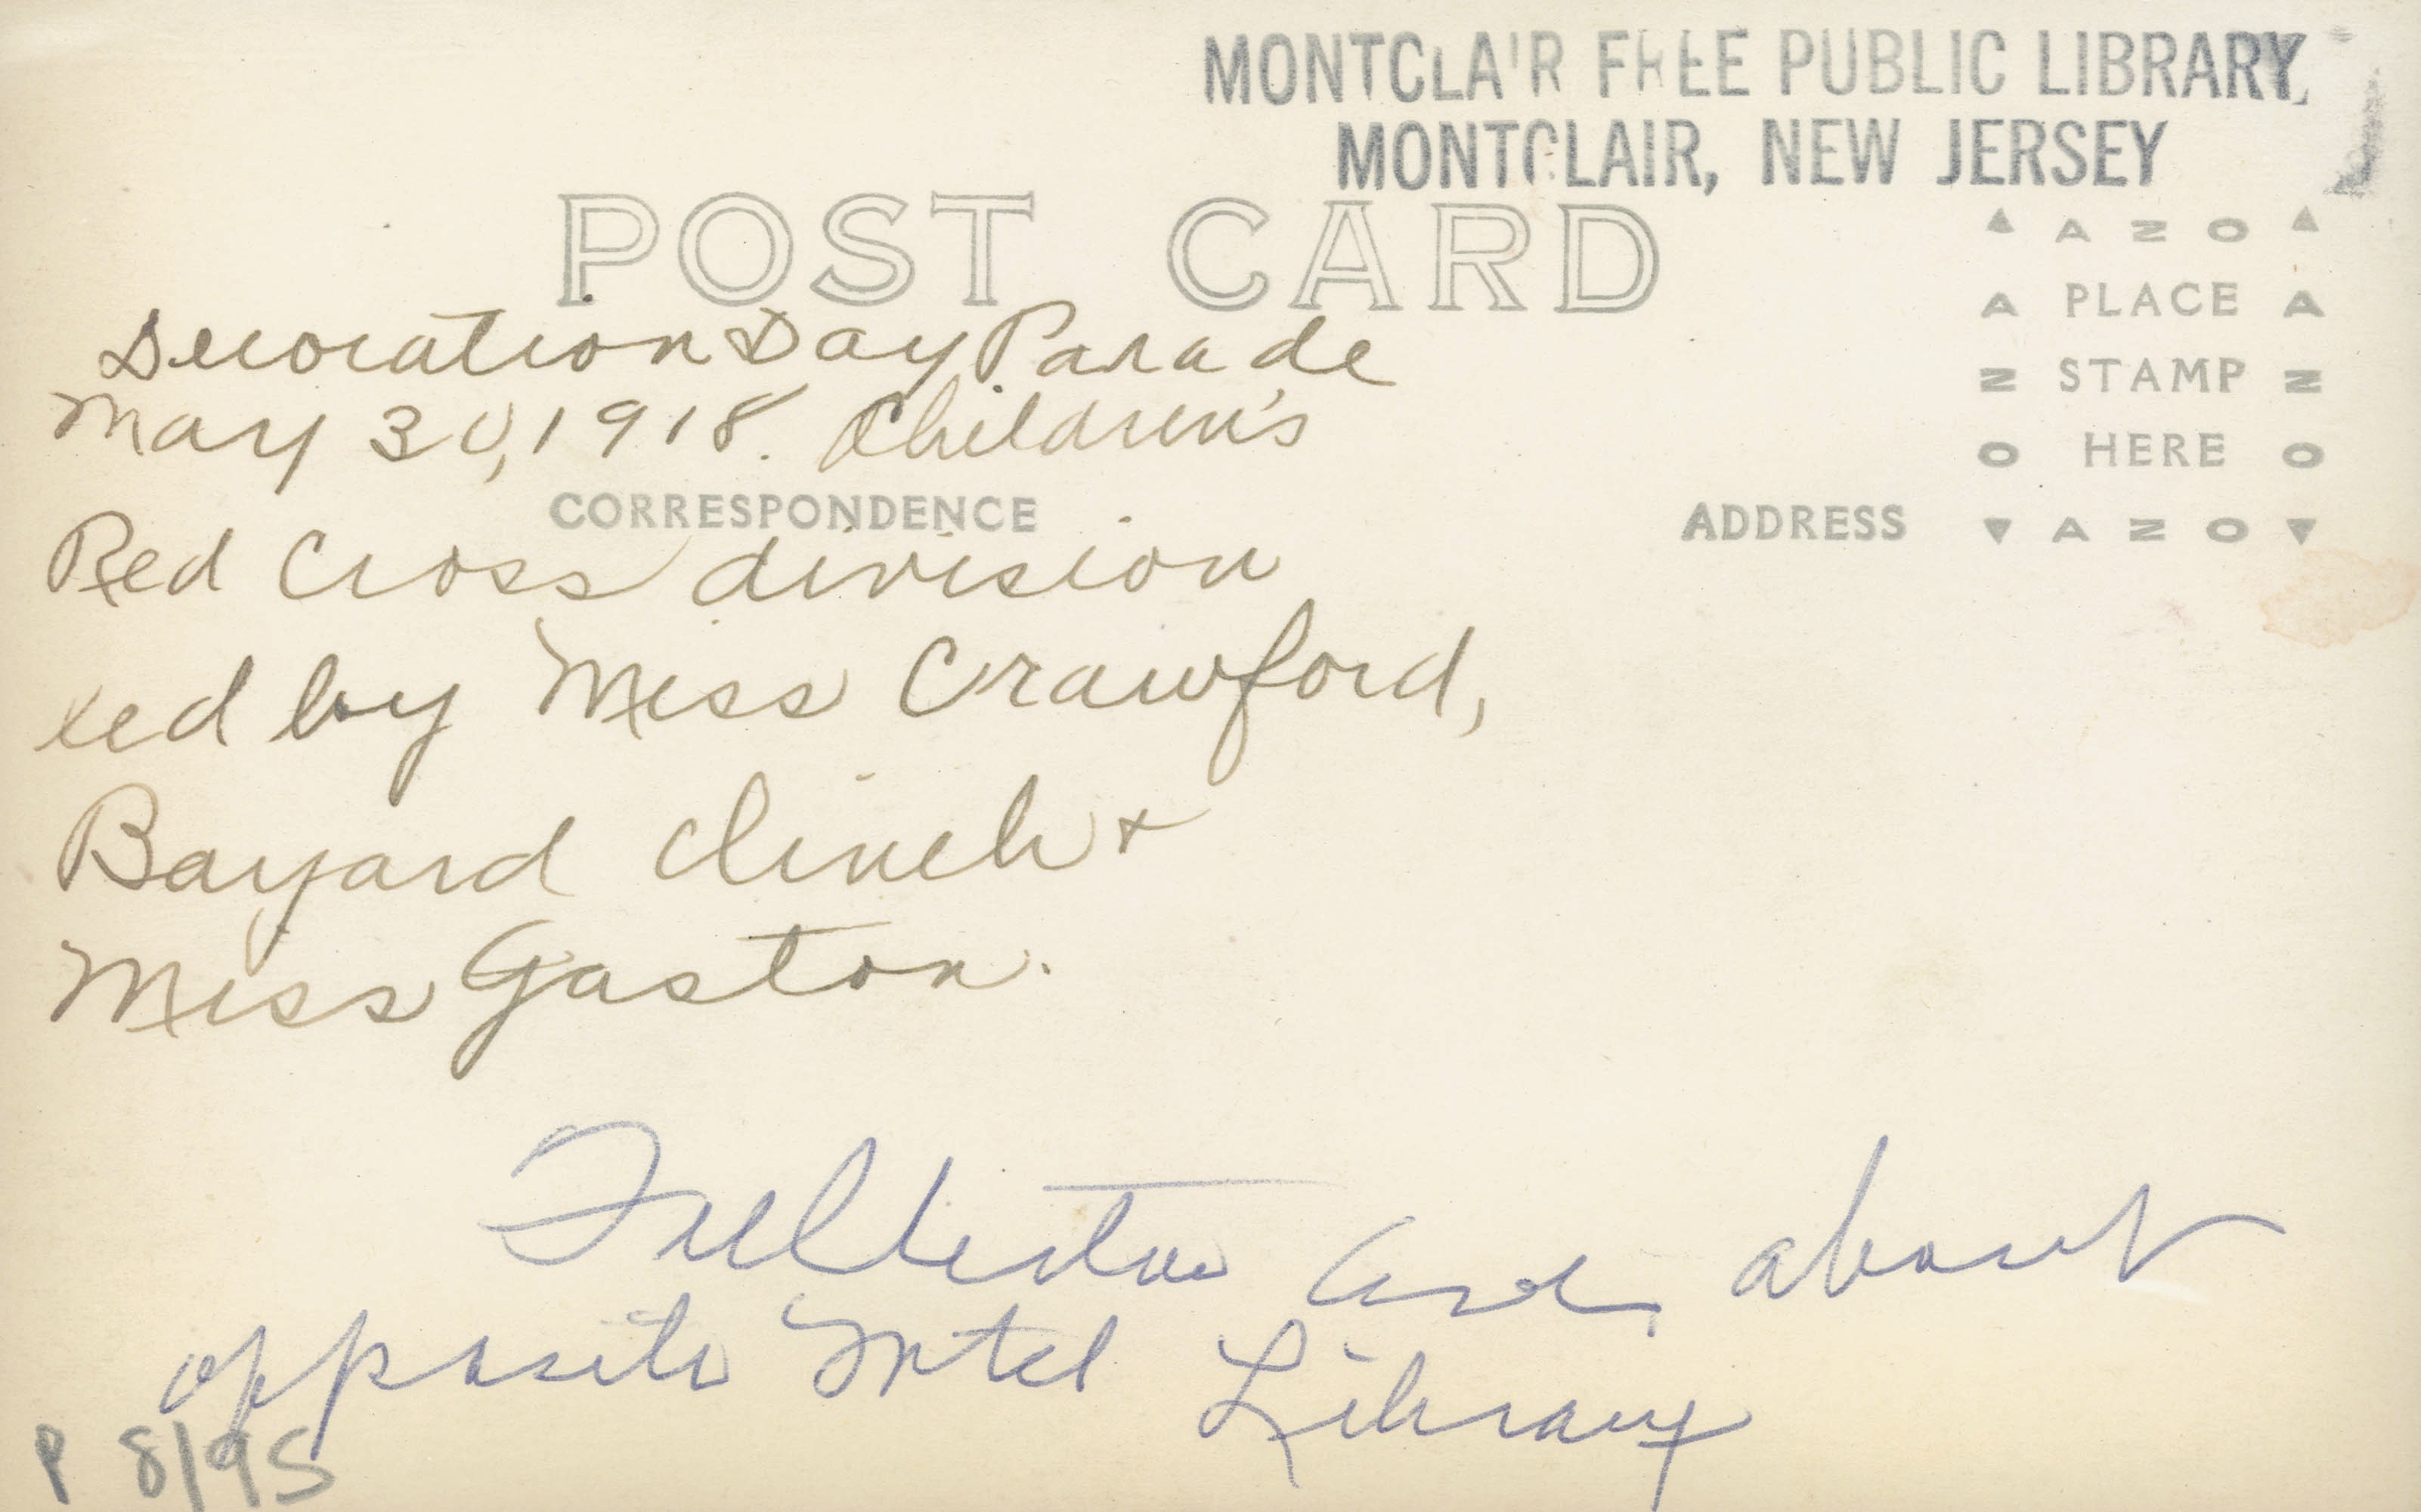 MONTCLAIR FREE PUBLIC LIBRARY,
MONTCLAIR, NEW JERSEY
POST CARD
AZO
A PLACE A
N STAMP N
O HERE O
AZO
CORRESPONDENCE
ADDRESS
Decoration Day Parade
May 30, 1918. Children's
Red Cross division
led by Miss Crawford,
Bayard Clinch +
Miss Gaston.
Fullerton Ave, about
opposite Mtcl Library
P 8/95